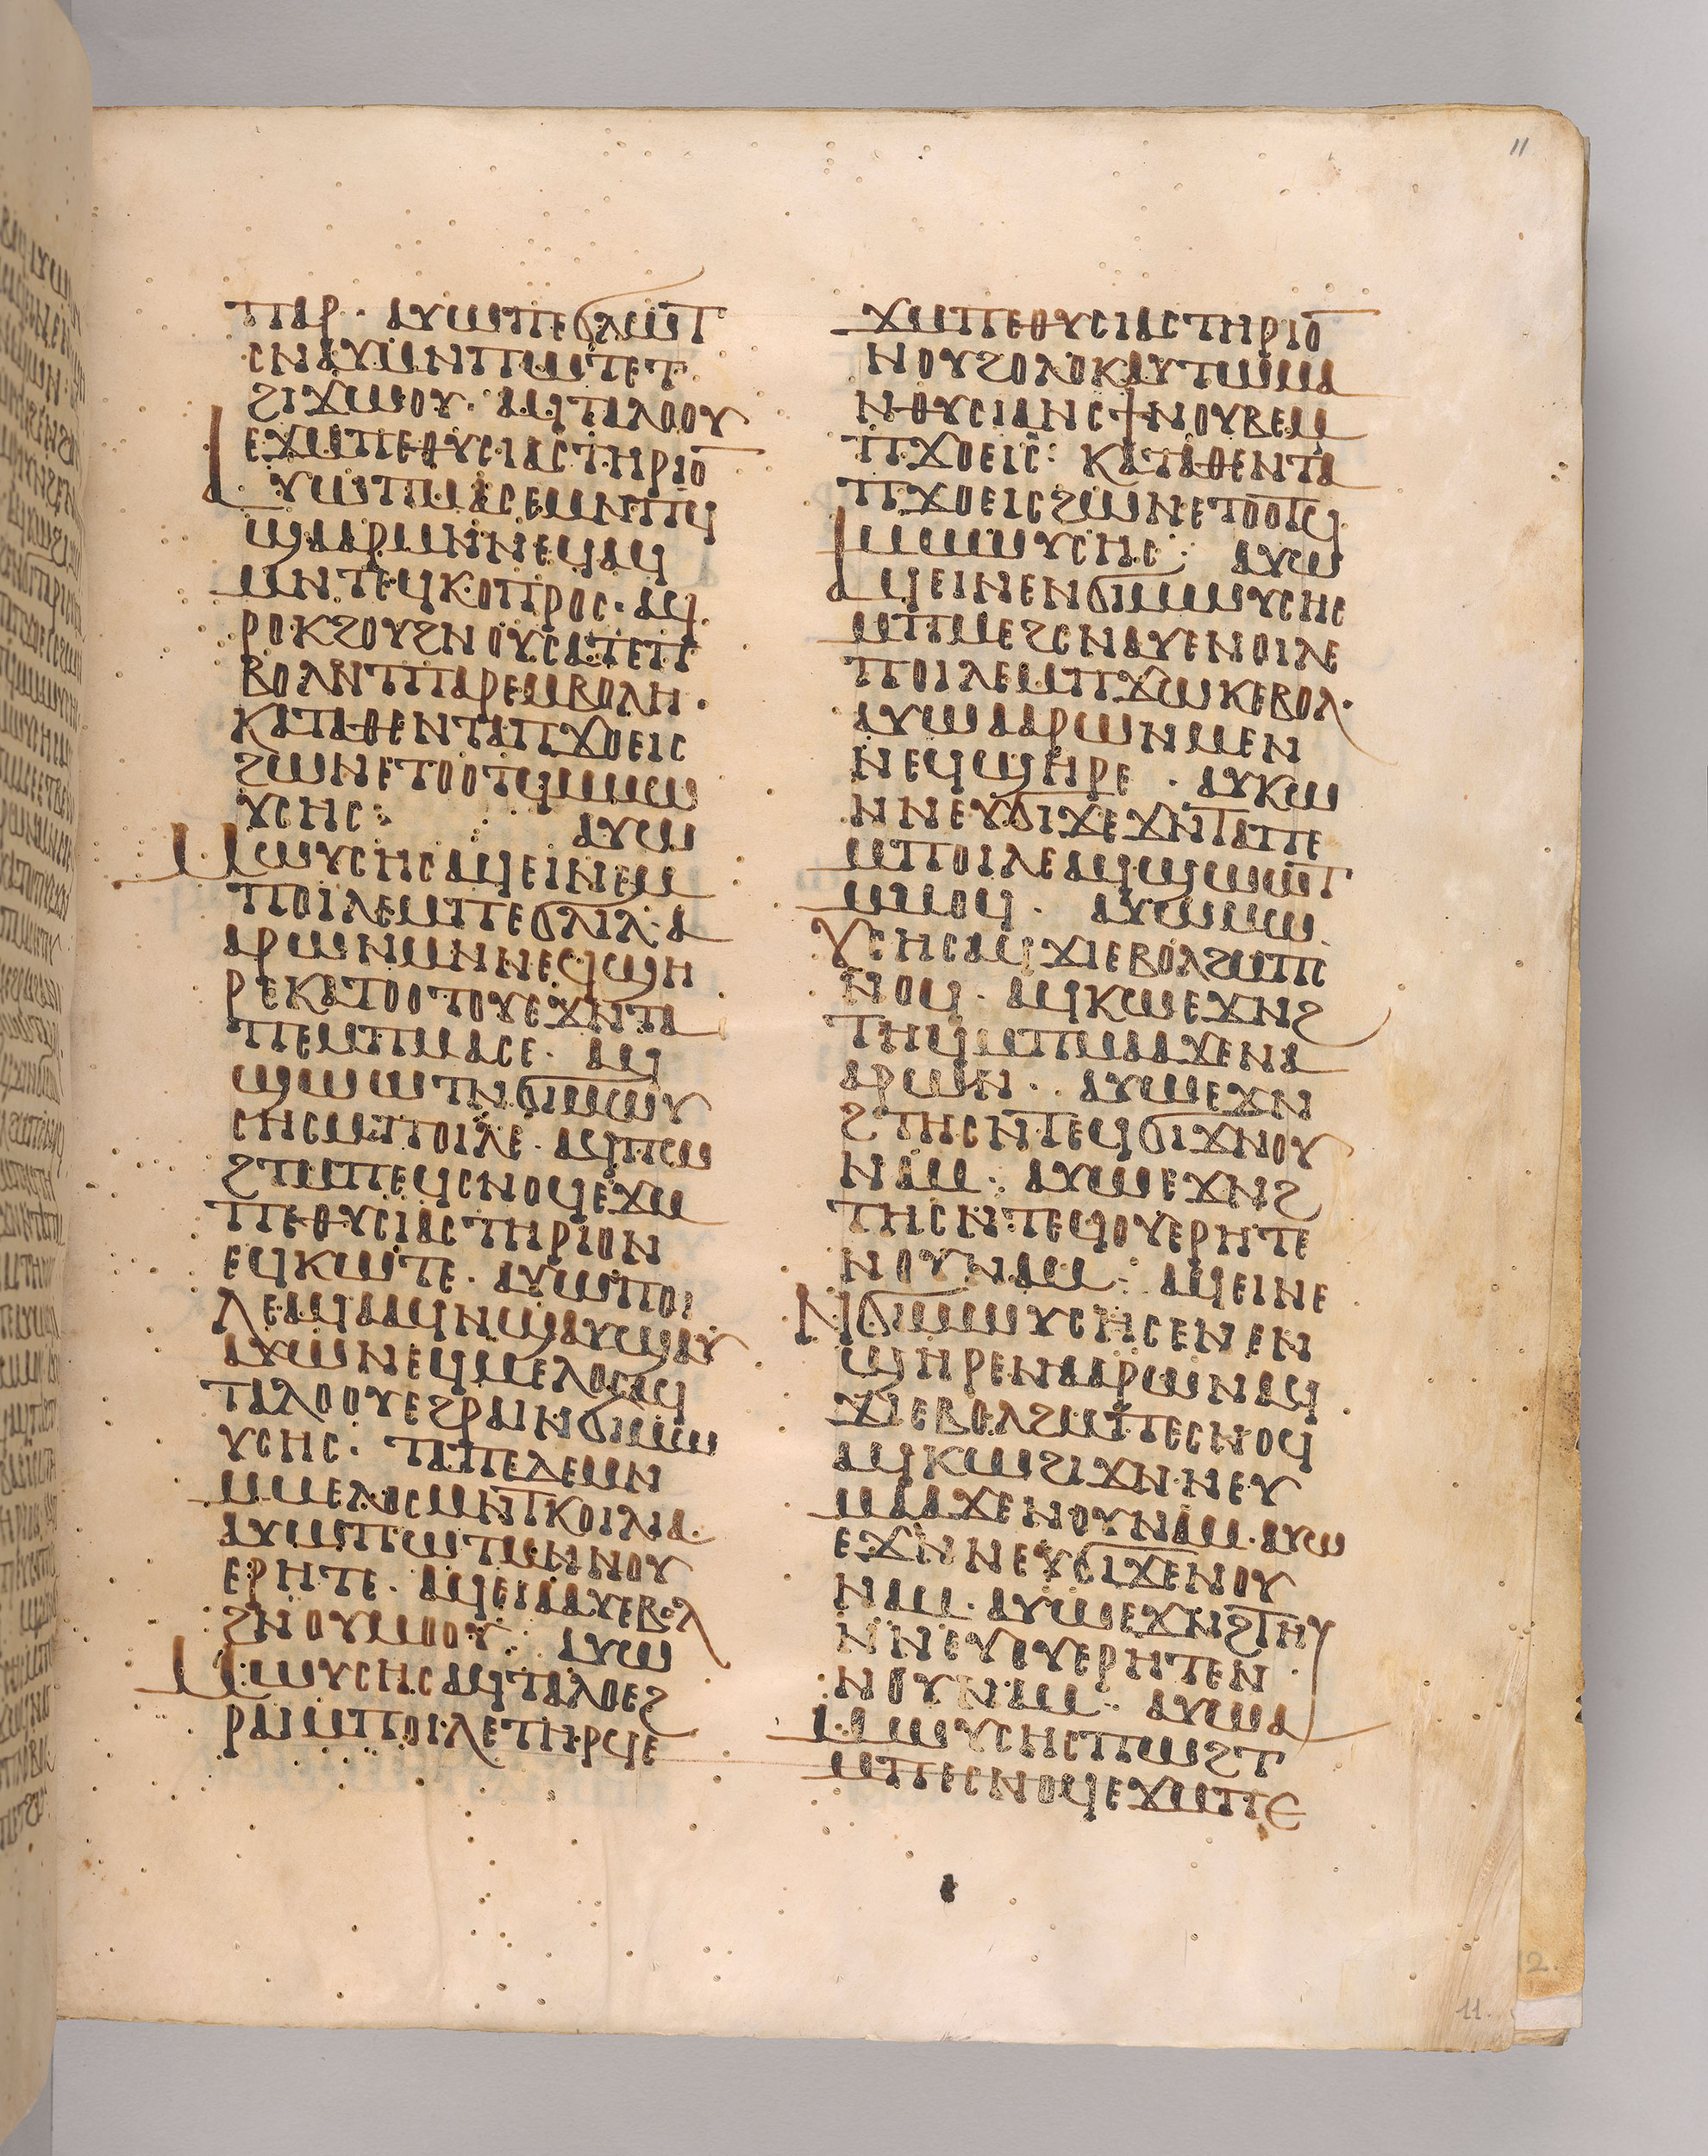 11
ⲡⲁⲣ· ⲁⲩⲱⲧⲉϭⲗⲱⲧ
ⲥⲛⲁⲩⲙⲛⲡⲱⲧⲉⲧ
ϩⲓϫⲱⲟⲩ· ⲁϥⲧⲁⲗⲟⲟⲩ
ⲉϫⲙⲡⲉⲑⲩⲥⲓⲁⲥⲧⲏⲣⲓⲟ̅
ⲁⲩⲱⲡⲙⲁⲥⲉⲙⲛⲡϥ
ϣⲁⲁⲣⲙⲛⲛⲉϥⲁϥ
ⲙⲛⲧⲉϥⲕⲟⲡⲣⲟⲥ· ⲁϥ
ⲣⲟⲕϩⲟⲩϩⲛⲟⲩⲥⲁⲧⲉⲡ
ⲃⲟⲗⲛⲧⲡⲁⲣⲉⲙⲃⲟⲗⲏ·
ⲕⲁⲧⲁⲑⲉⲛⲧⲁⲡϫⲟⲉⲓⲥ
ϩⲱⲛⲉⲧⲟⲟⲧϥⲙⲙⲱ
ⲩⲥⲏⲥ: ⲁⲩⲱ
ⲙⲱⲩⲥⲏⲥⲁϥⲉⲓⲛⲉⲙ
ⲡⲟⲓⲗⲉⲙⲡⲉϭⲗⲓⲗ·ⲁ
ⲁⲣⲱⲛⲙⲛⲛⲉϥϣⲏ
ⲣⲉⲕⲁⲧⲟⲟⲧⲟⲩⲉϫⲛⲧⲁ
ⲡⲉⲙⲡⲙⲁⲥⲉ· ⲁϥ
ϣⲱⲱⲧⲛϭⲓⲙⲱⲩ
ⲥⲏⲥⲙⲡⲟⲓⲗⲉ· ⲁϥⲡⲱ
ϩⲧⲙⲡⲉϥⲥⲛⲟϥⲉϫⲙ
ⲡⲉⲑⲩⲥⲓⲁⲥⲧⲏⲣⲓⲟⲛ
ⲉϥⲕⲱⲧⲉ· ⲁⲩⲱⲡⲟⲓ
ⲗⲉⲁϥⲁⲁϥⲛϣⲁⲩϣⲁⲩ
ⲁⲩⲱⲛⲉϥⲙⲉⲗⲟⲥⲁϥ
ⲧⲁⲗⲟⲟⲩⲉϩⲣⲁⲓⲛϭⲓⲙⲱ
ⲩⲥⲏⲥ· ⲧⲁⲡⲉⲇⲉⲙⲛ
ⲙⲙⲉⲗⲟⲥⲙⲛⲧⲕⲟⲓⲗⲓⲁ·
ⲁⲩⲱⲡⲱⲧⲙⲛⲛⲟⲩ
ⲉⲣⲏⲧⲉ· ⲁϥⲉⲓⲁⲁⲩⲉⲃⲟⲗ
ϩⲛⲟⲩⲙⲟⲟⲩ: ⲁⲩⲱ
ⲙⲱⲩⲥⲏⲥⲁϥⲧⲁⲗⲟⲉϩ
ⲣⲁⲓⲙⲡⲟⲓⲗⲉⲧⲏⲣϥⲉ
ϫⲙⲡⲉⲑⲩⲥⲓⲁⲥⲧⲏⲣⲓⲟ̅
ⲛⲟⲩϩⲟⲗⲟⲕⲁⲩⲧⲱⲙⲁ
ⲛⲑⲩⲥⲓⲁⲛⲥϯⲛⲟⲩⲃⲉⲙ
ⲡϫⲟⲉⲓⲥ: ⲕⲁⲧⲁⲑⲉⲛⲧⲁ
ⲡϫⲟⲉⲓⲥϩⲱⲛⲉⲧⲟⲟⲧϥ
ⲙⲙⲱⲩⲥⲏⲥ: ⲁⲩⲱ
ⲁϥⲉⲓⲛⲉⲛϭⲓⲙⲱⲩⲥⲏⲥ
ⲙⲡⲙⲉϩⲥⲛⲁⲩⲉⲛⲟⲓⲗⲉ
ⲡⲟⲓⲗⲉⲙⲡϫⲱⲕⲉⲃⲟⲗ·
ⲁⲩⲱⲁⲁⲣⲱⲛⲙⲉⲛ
ⲛⲉϥϣⲏⲣⲉ· ⲁⲩⲕⲱ
ⲛⲛⲉⲩϭⲓϫⲉϫⲛⲧⲁⲡⲉ
ⲙⲡⲟⲓⲗⲉⲁϥϣⲱⲱⲧ
ⲙⲙⲟϥ· ⲁⲩⲱⲙⲱ
ⲩⲥⲏⲥⲁϥϫⲓⲉⲃⲟⲗϩⲙⲡⲥ
ⲛⲟϥ· ⲁϥⲕⲱⲉϫⲛϩ
ⲧⲏϥⲙⲡⲙⲁⲁϫⲉⲛⲁ
ⲁⲣⲱⲛ· ⲁⲩⲱⲉϫⲛ
ϩⲧⲏⲥⲛⲧⲉϥϭⲓϫⲛⲟⲩ
ⲛⲁⲙ: ⲁⲩⲱⲉϫⲛϩ
ⲧⲏⲥⲛⲧⲉϥⲟⲩⲉⲣⲏⲧⲉ
ⲛⲟⲩⲛⲁⲙ: ⲁϥⲉⲓⲛⲉ
ⲛϭⲓⲙⲱⲩⲥⲏⲥⲉⲛⲉⲛ
ϣⲏⲣⲉⲛⲁⲁⲣⲱⲛⲁϥ
ϫⲓⲉⲃⲟⲗϩⲙⲡⲉⲥⲛⲟϥ
ⲁϥⲕⲱϩⲓϫⲛⲛⲉⲩ
ⲙⲁⲁϫⲉⲛⲟⲩⲛⲁⲙ·ⲁⲩⲱ
ⲉϫⲛⲛⲉⲩϭⲓϫⲉⲛⲟⲩ
ⲛⲁⲙ· ⲁⲩⲱⲉϫⲛϩⲧⲏⲩ
ⲛⲛⲉⲩⲟⲩⲉⲣⲏⲧⲉⲛ
ⲛⲟⲩⲛⲁⲙ· ⲁⲩⲱⲁ
ⲙⲱⲩⲥⲏⲥⲡⲱϩⲧ
ⲙⲡⲉⲥⲛⲟϥⲉϫⲙⲡⲉ
12.
11.